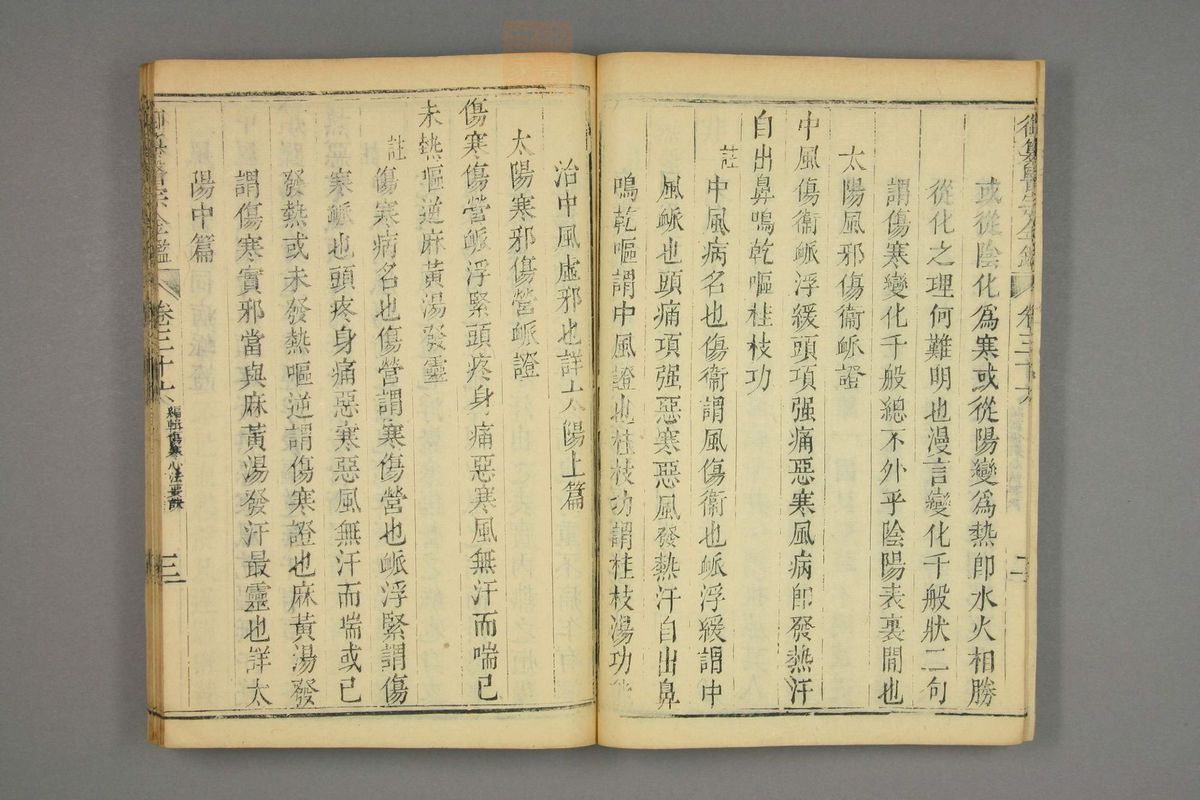 或從陰化為寒或從陽變為熱即水火相勝
從化之理何難明也漫言變化千般狀二句
謂傷寒變化千般總不外乎陰陽表裏間也
太陽風邪傷衞脈證
中風傷衞脈浮緩頭項强痛惡寒風病即發熱汗
自出鼻鳴乾嘔桂枝功
註
中風病名也傷衞謂風傷衞也脈浮緩謂中
風脈也頭痛項强惡寒惡風發熱汗自出鼻
鳴乾嘔謂中風證也桂枝功謂桂枝湯功能
治中風虛邪也詳太陽上篇
太陽寒邪傷營脈證
傷寒傷營脈浮緊頭疼身痛惡寒風無汗而喘已
未熱嘔逆麻黃湯發靈
註
傷寒病名也傷營謂寒傷營也脈浮緊謂傷
寒脈也頭疼身痛惡寒惡風無汗而喘或已
發熱或未發熱嘔逆謂傷寒證也麻黃湯發
謂傷寒實邪當與麻黃湯發汗最靈也詳太
陽中篇
御纂醫宗金鑑
卷三十六
編輯傷寒心法要訣
三